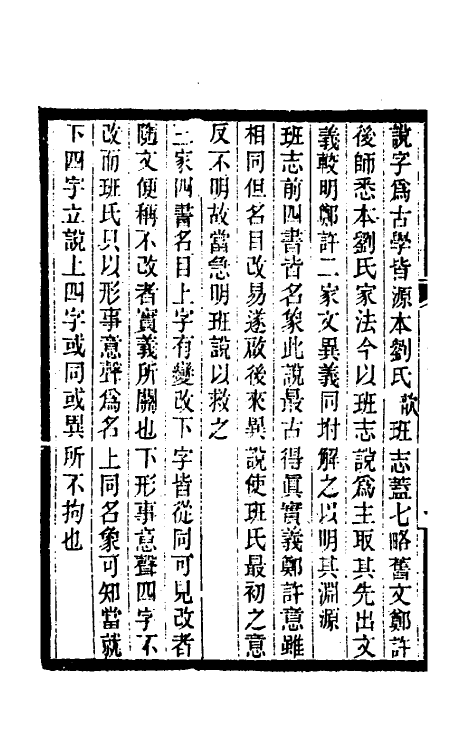 說字爲古學皆源本劉氏歆班志蓋七略舊文鄭許
後師悉本劉氏家法今以班志說爲主取其先出文
義較明鄭許二家文異義同坿解之以明其淵源
班志前四書皆名象此說最古得眞實義鄭許意雖
相同但名目改易遂啟後來異說使班氏最初之意
反不明故當急明班說以救之
三家四書名目上字有變改下字皆從同可見改者
隨文便稱不改者實義所關也下形事意聲四字不
改而班氏只以形事意聲爲名上同名象可知當就
下四字立說上四字或同或異所不拘也